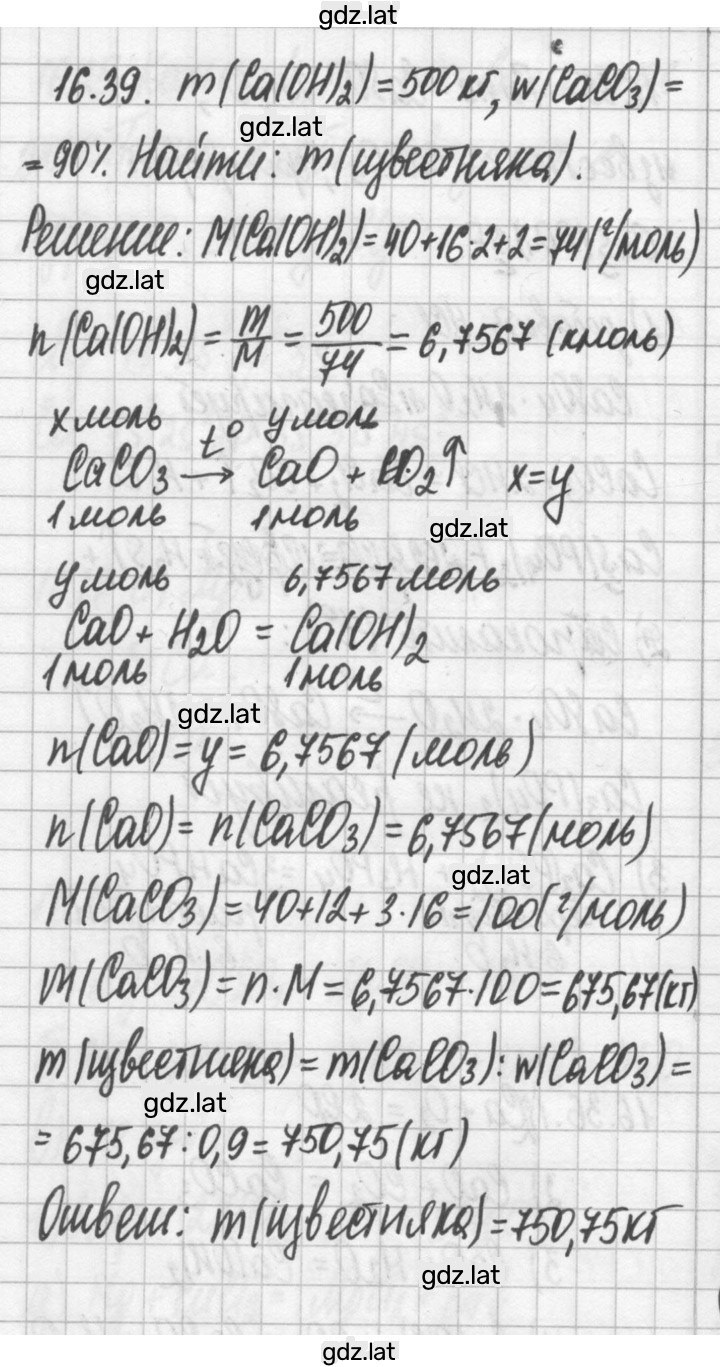 gdz.lat
16.39. m(Ca(OH)₂)=500 кг, w(CaCO₃)=
gdz.lat
=90%. Найти: m(известняка).
Решение: M(Ca(OH)₂)=40+16·2+2=74(г/моль)
gdz.lat
n(Ca(OH)₂)= m/M = 500/74 = 6,7567 (кмоль)
x моль y моль
CaCO₃ →t° CaO + CO₂↑ x=y
1 моль 1 моль
gdz.lat
y моль 6,7567 моль
CaO + H₂O = Ca(OH)₂
1 моль 1 моль
gdz.lat
n(CaO)=y=6,7567 (моль)
n(CaO)=n(CaCO₃)=6,7567(моль)
gdz.lat
M(CaCO₃)=40+12+3·16=100(г/моль)
m(CaCO₃)=n·M=6,7567·100=675,67(кг)
m(известняка)=m(CaCO₃):w(CaCO₃)=
gdz.lat
=675,67:0,9=750,75(кг)
Ответ: m(известняка)=750,75 кг
gdz.lat
gdz.lat